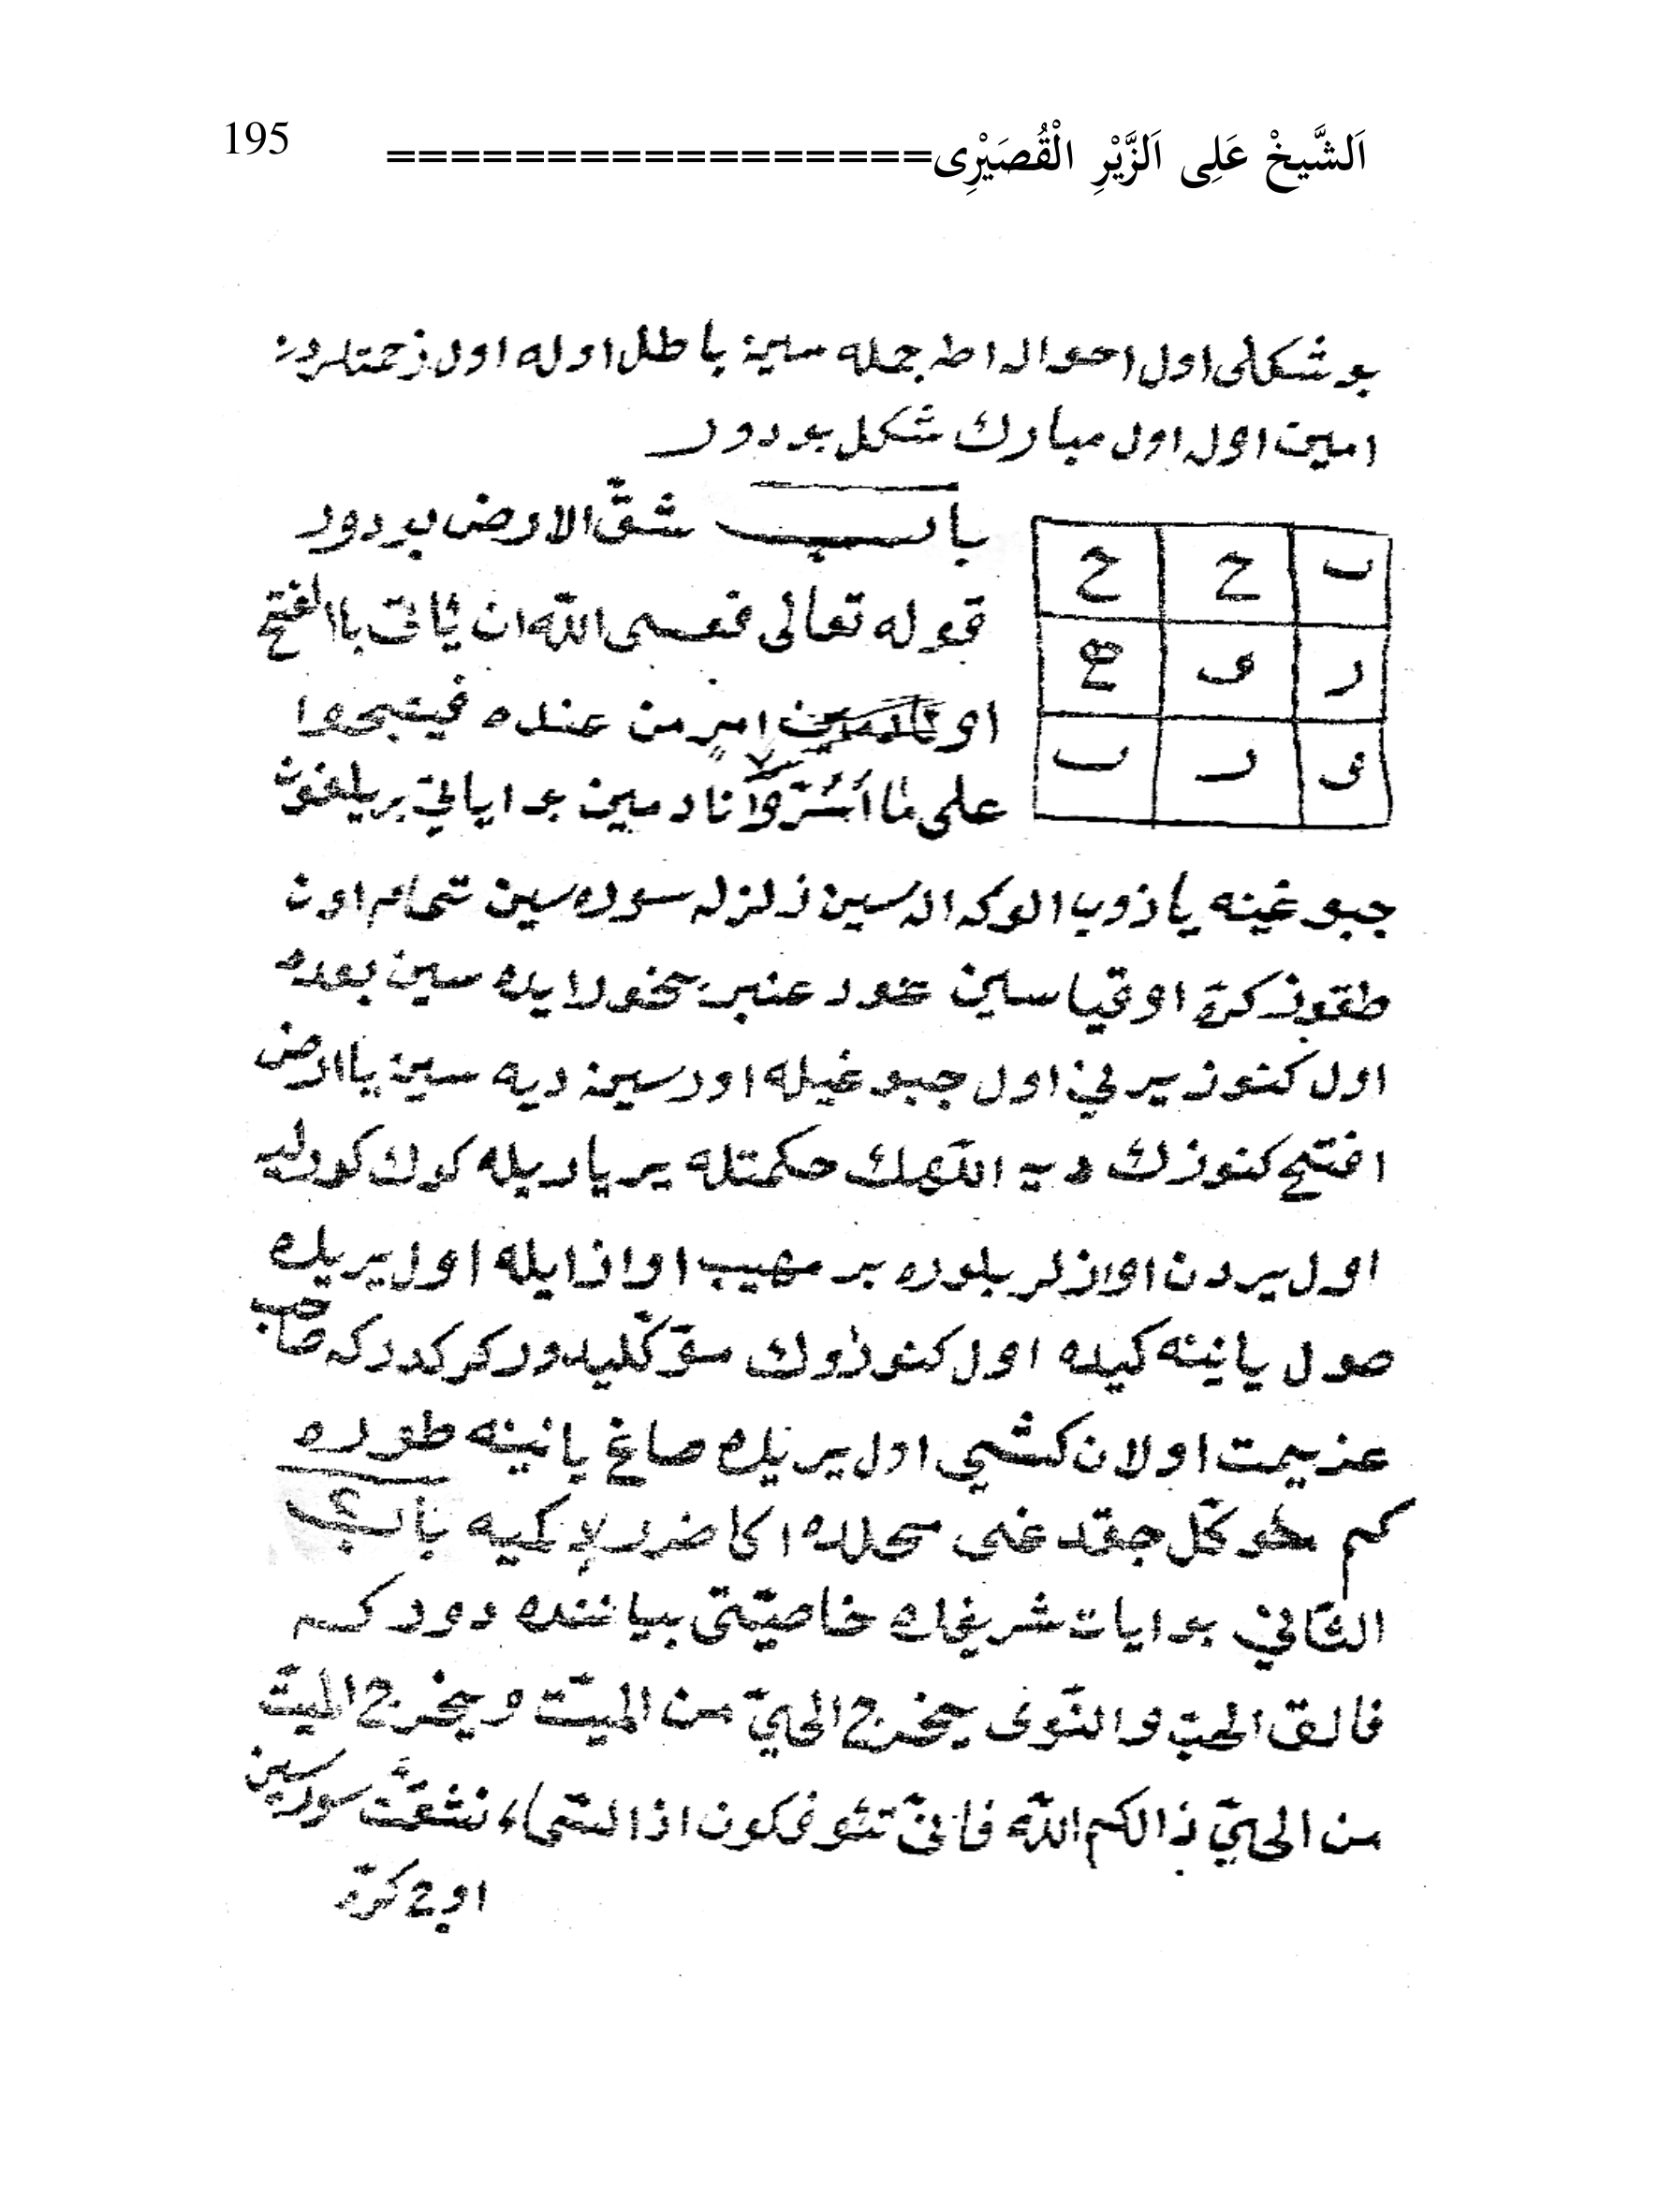 195 =================اَلشَّيخْ عَلِى اَلزَّيْرِ الْقُصَيْرِى
بو شكلى اول احوالـ اطـ جمله سين باطل اوله اول زحمتلردن
امين اولـ اول مبارك شكل بودور
ب ح ح
ر و ح
و ر ب
باب شقّ الارض بودور
قوله تعالى فعسى الله ان ياتى باالفتح
او امر من عنده فيتبحوا
على ما أسرّوا نادمين بو اياتى بر يلغون
جبوغينه يازوب الوكه الـ سين زلزلـ سوره سين تمام اون
طقوز كرة اوقياسين عود عنبر بخور ايده سين بعده
اول كنوز يرنى اول جبوغيله اورسين ديه سين يا ارض
افتح كنوزك ديه اللّهك حكمتله ير ياريله كوك كورليه
اول يردن اوازلر بلوره بر مهيب اواز ايله اول يريك
صول يانينه كيده اول كنوزوك مؤكّليدور كركدركه صاحب
عزيمت اولان كشى اول يريك صاغ يانينه طوره
كم مؤكّل جقدغى محلده اكا ضرر ايتميه باب
الثّانى بو ايات شريفك خاصيّتى بيانيده دور كـه
فالق الحبّ والنّوى يخرج الحيّ من الميّت و يخرج الميّت
من الحيّ ذالكم الله فانّى تئوفكون اذا السّماء نشقّت سورسين
اوچ كرّه